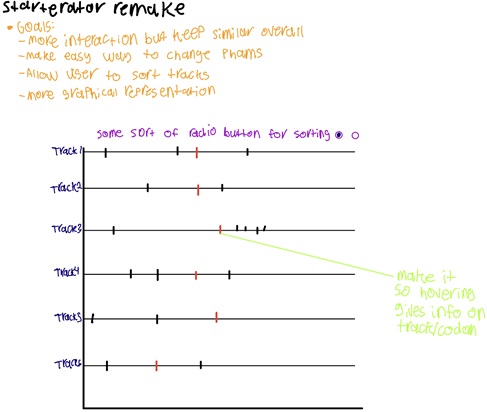 starterator remake
• Goals:
- more interaction but keep similar overall
- make easy ways to change phams
- Allow user to sort tracks
- more graphical representation
some sort of radio button for sorting
Track1
Track2
Track3
Track4
Track5
make it
so hovering
gives info on
track/codon